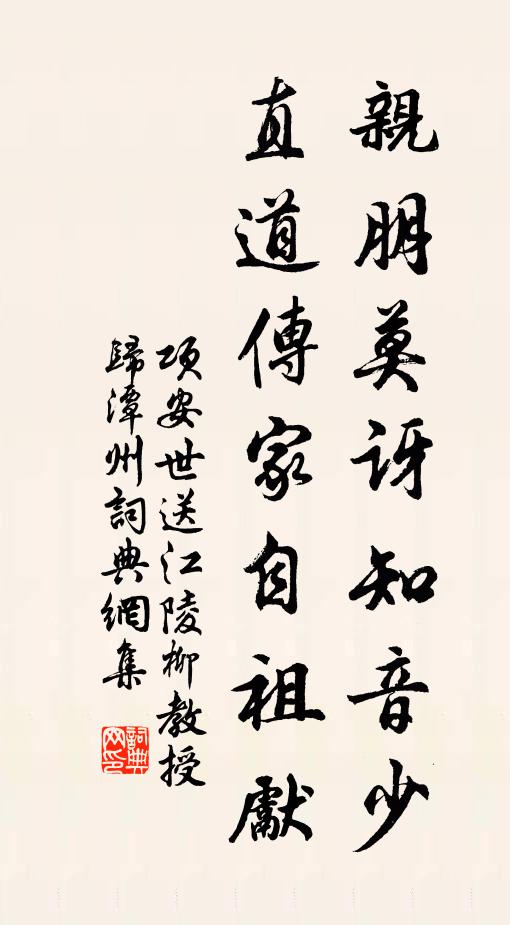 親朋莫訝知音少
直道傳家自祖獻
項安世送江陵柳教授
歸潭州詞典網集
詞典
网印